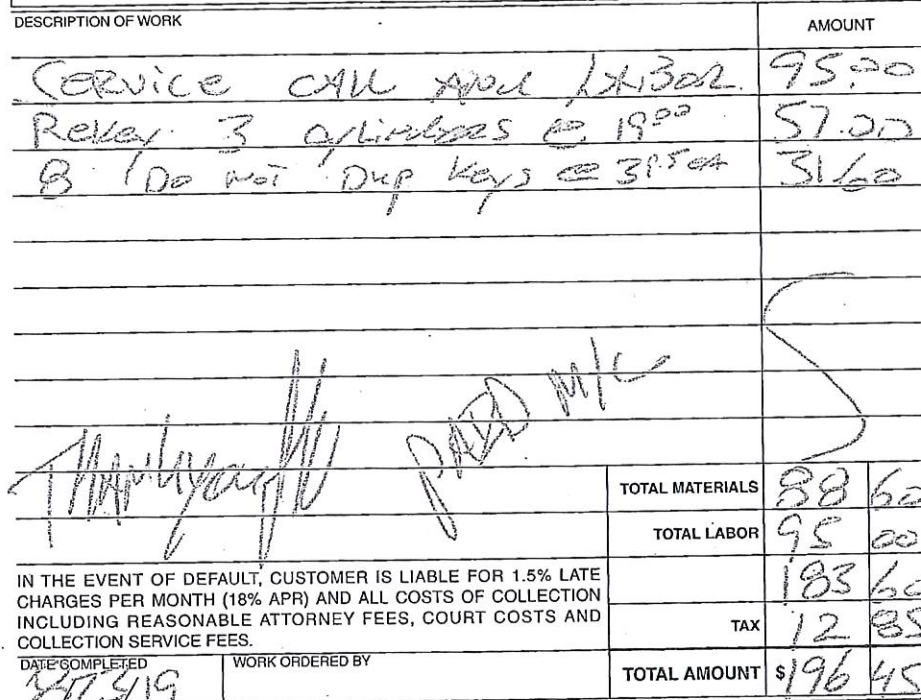 DESCRIPTION OF WORK AMOUNT
Service CALL AND LABOR 95.00
Rekey 3 cylinders @ 19.00 57.00
8 "Do Not Dup Keys @ 3.95 EA 31.60
THANKYOU PAID M/C
TOTAL MATERIALS 88 60
TOTAL LABOR 95 00
183 60
TAX 12 85
TOTAL AMOUNT $196 45
IN THE EVENT OF DEFAULT, CUSTOMER IS LIABLE FOR 1.5% LATE
CHARGES PER MONTH (18% APR) AND ALL COSTS OF COLLECTION
INCLUDING REASONABLE ATTORNEY FEES, COURT COSTS AND
COLLECTION SERVICE FEES.
DATE COMPLETED WORK ORDERED BY